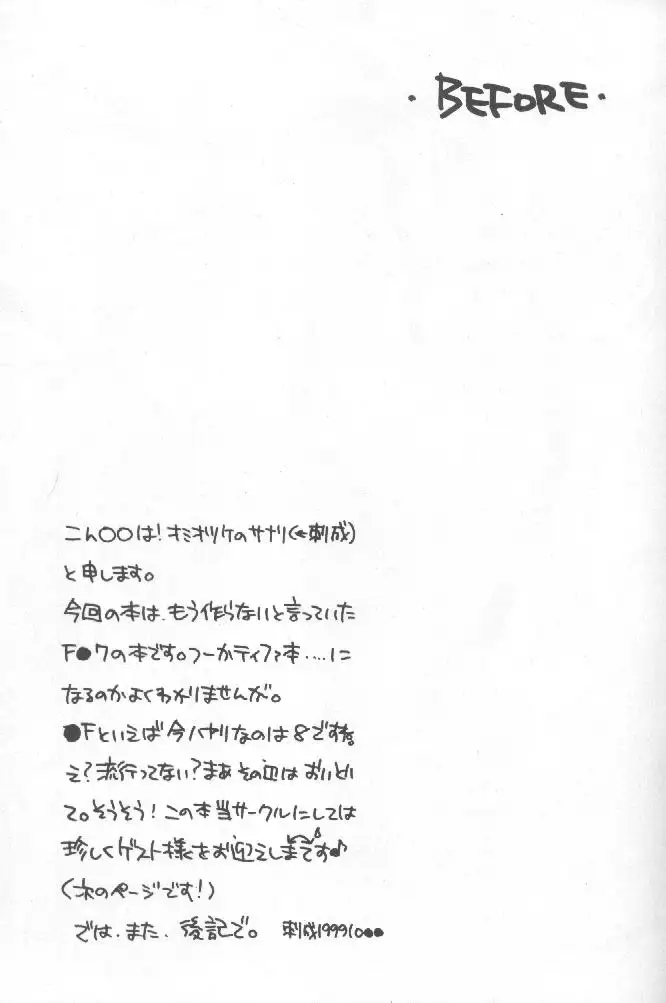 ・BEFORE・
こん〇〇は!オミオツケのサナリ(←刺成)
と申します。
今回の本は、もう作らないと言っていた
F●7の本です。つーかティファ本‥‥に
なるのかよくわかりませんが。
●Fといえば今ハヤリなのは8ですね
え?流行ってない?まぁその辺はおいとい
て。そうそう!この本当サークルにしては
珍しくゲスト様をお迎えしまです♪
(次のページです!)
では、また、後記で。 刺成199910●●